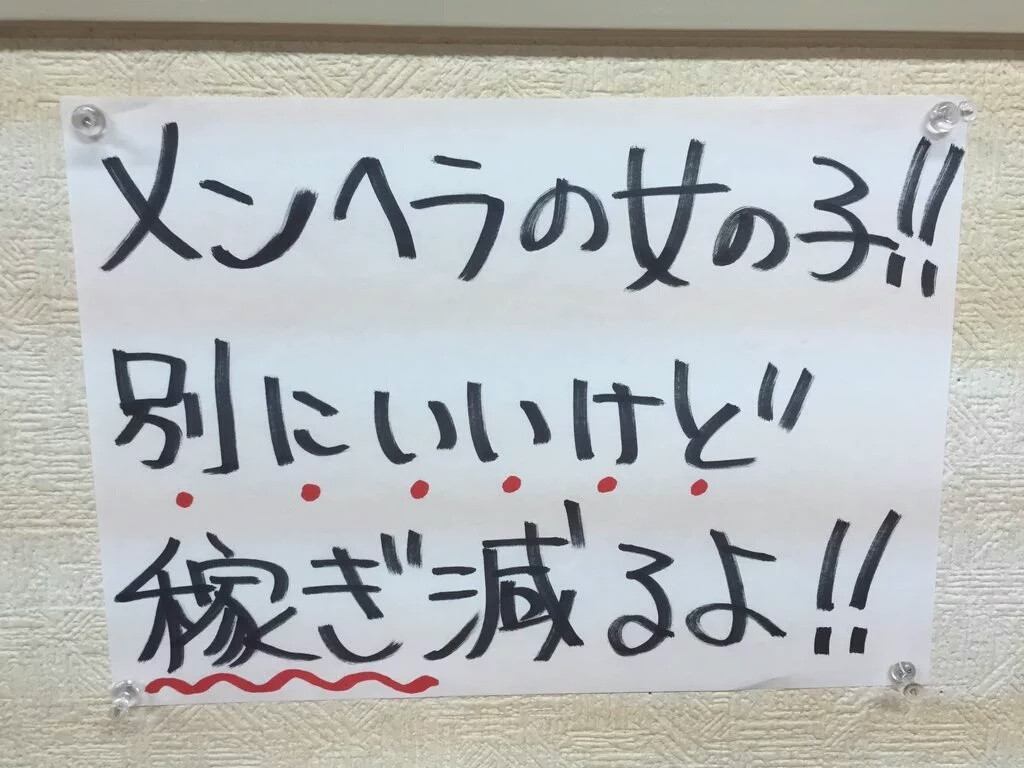 メンヘラの女の子!!
別にいいけど
稼ぎ減るよ!!